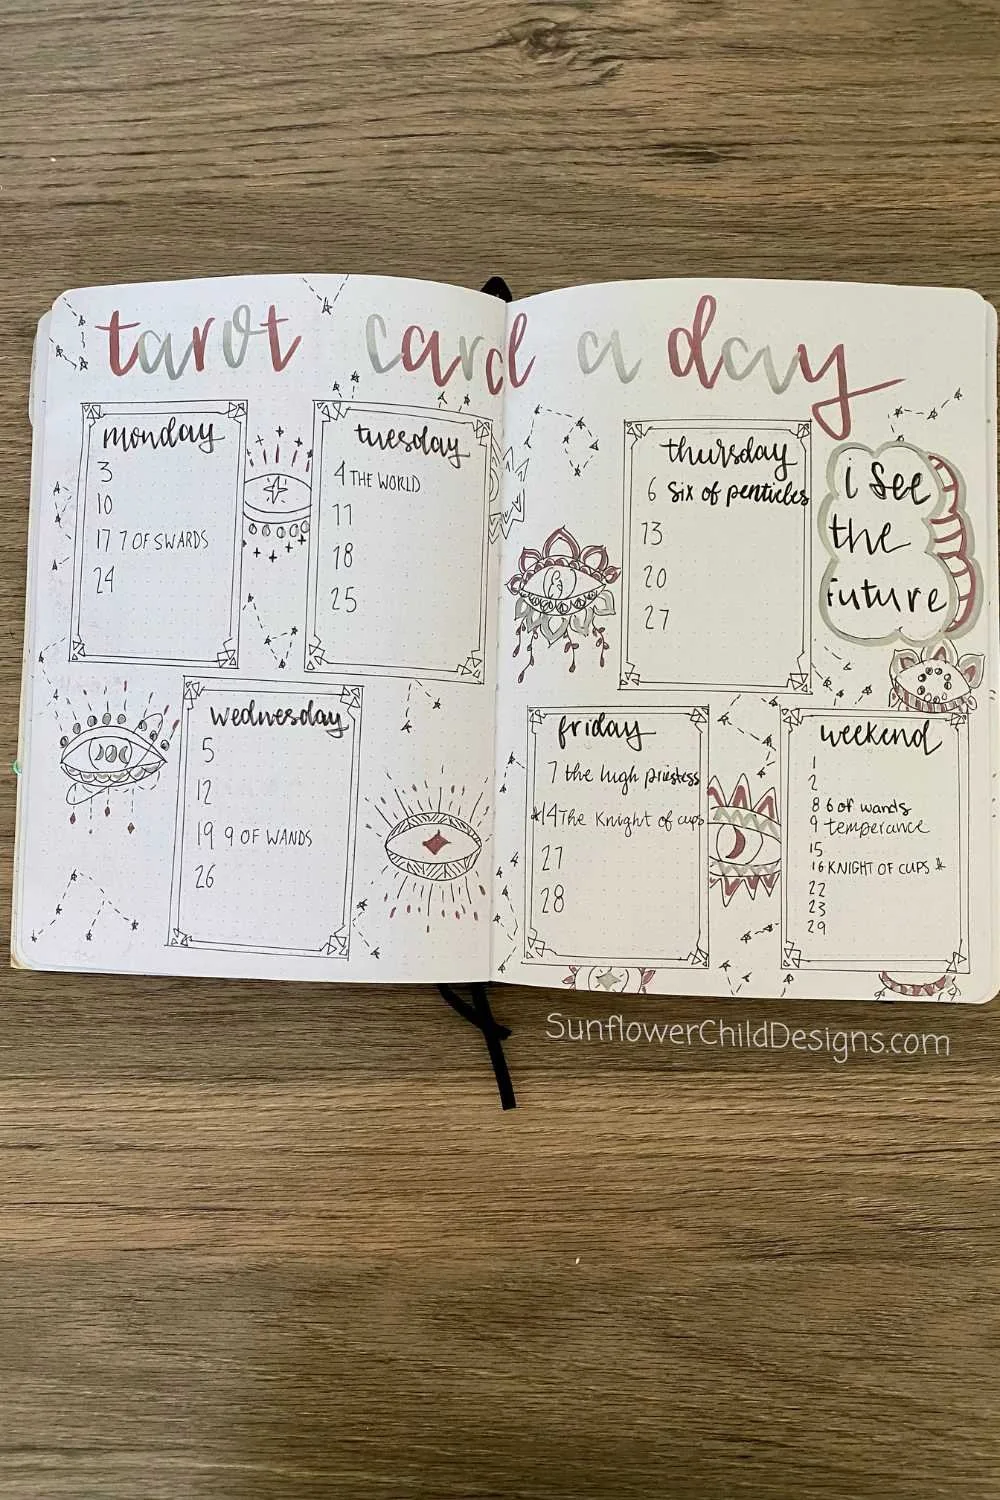 tarot card a day
monday
3
10
17 7 OF SWARDS
24
tuesday
4 THE WORLD
11
18
25
wednesday
5
12
19 9 OF WANDS
26
thursday
6 six of penticles
13
20
27
i see
the
future
friday
7 the high priestess
*14 The Knight of cups
27
28
weekend
1
2
8 6 of wands
9 temperance
15
16 KNIGHT OF CUPS *
22
23
29
SunflowerChildDesigns.com